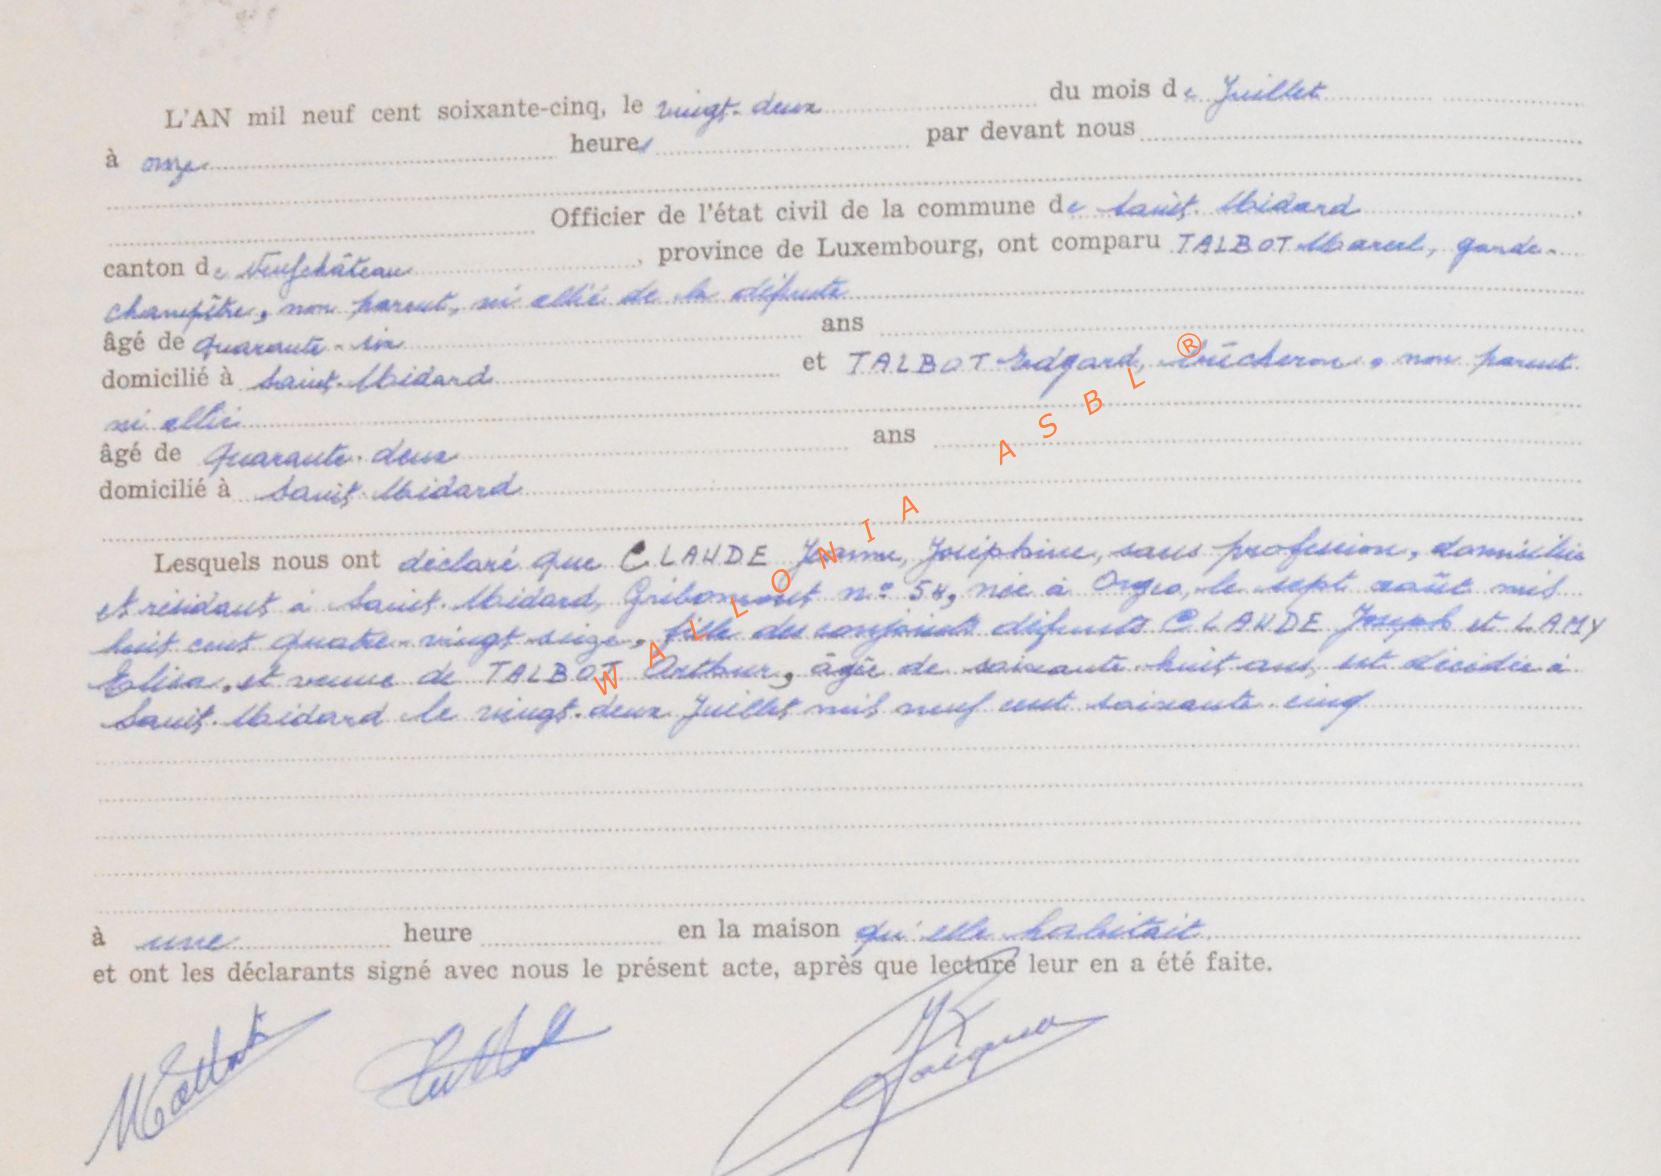 L'AN mil neuf cent soixante-cinq, le vingt-deux du mois de Juillet
à onze heures par devant nous
Officier de l'état civil de la commune de Saint-Médard
canton de Neufchâteau, province de Luxembourg, ont comparu TALBOT Marcel, garde-
champêtre, non parent, ni allié de la défunte
âgé de quarante-six ans
domicilié à Saint-Médard et TALBOT Edgard, bûcheron, non parent
ni allié
âgé de quarante-deux ans
domicilié à Saint-Médard
Lesquels nous ont déclaré que CLAUDE Jeanne, Joséphine, sans profession, domiciliée
et résidant à Saint-Médard, Gribomont n° 54, née à Orgeo, le sept août mil
huit cent quatre-vingt seize, fille des conjoints défunts CLAUDE Joseph et LAMY
Elisa, et veuve de TALBOT Arthur, âgée de soixante-huit ans, est décédée à
Saint-Médard le vingt-deux Juillet mil neuf cent soixante-cinq
à une heure en la maison qu'elle habitait
et ont les déclarants signé avec nous le présent acte, après que lecture leur en a été faite.
WALLONIA ASBL ®